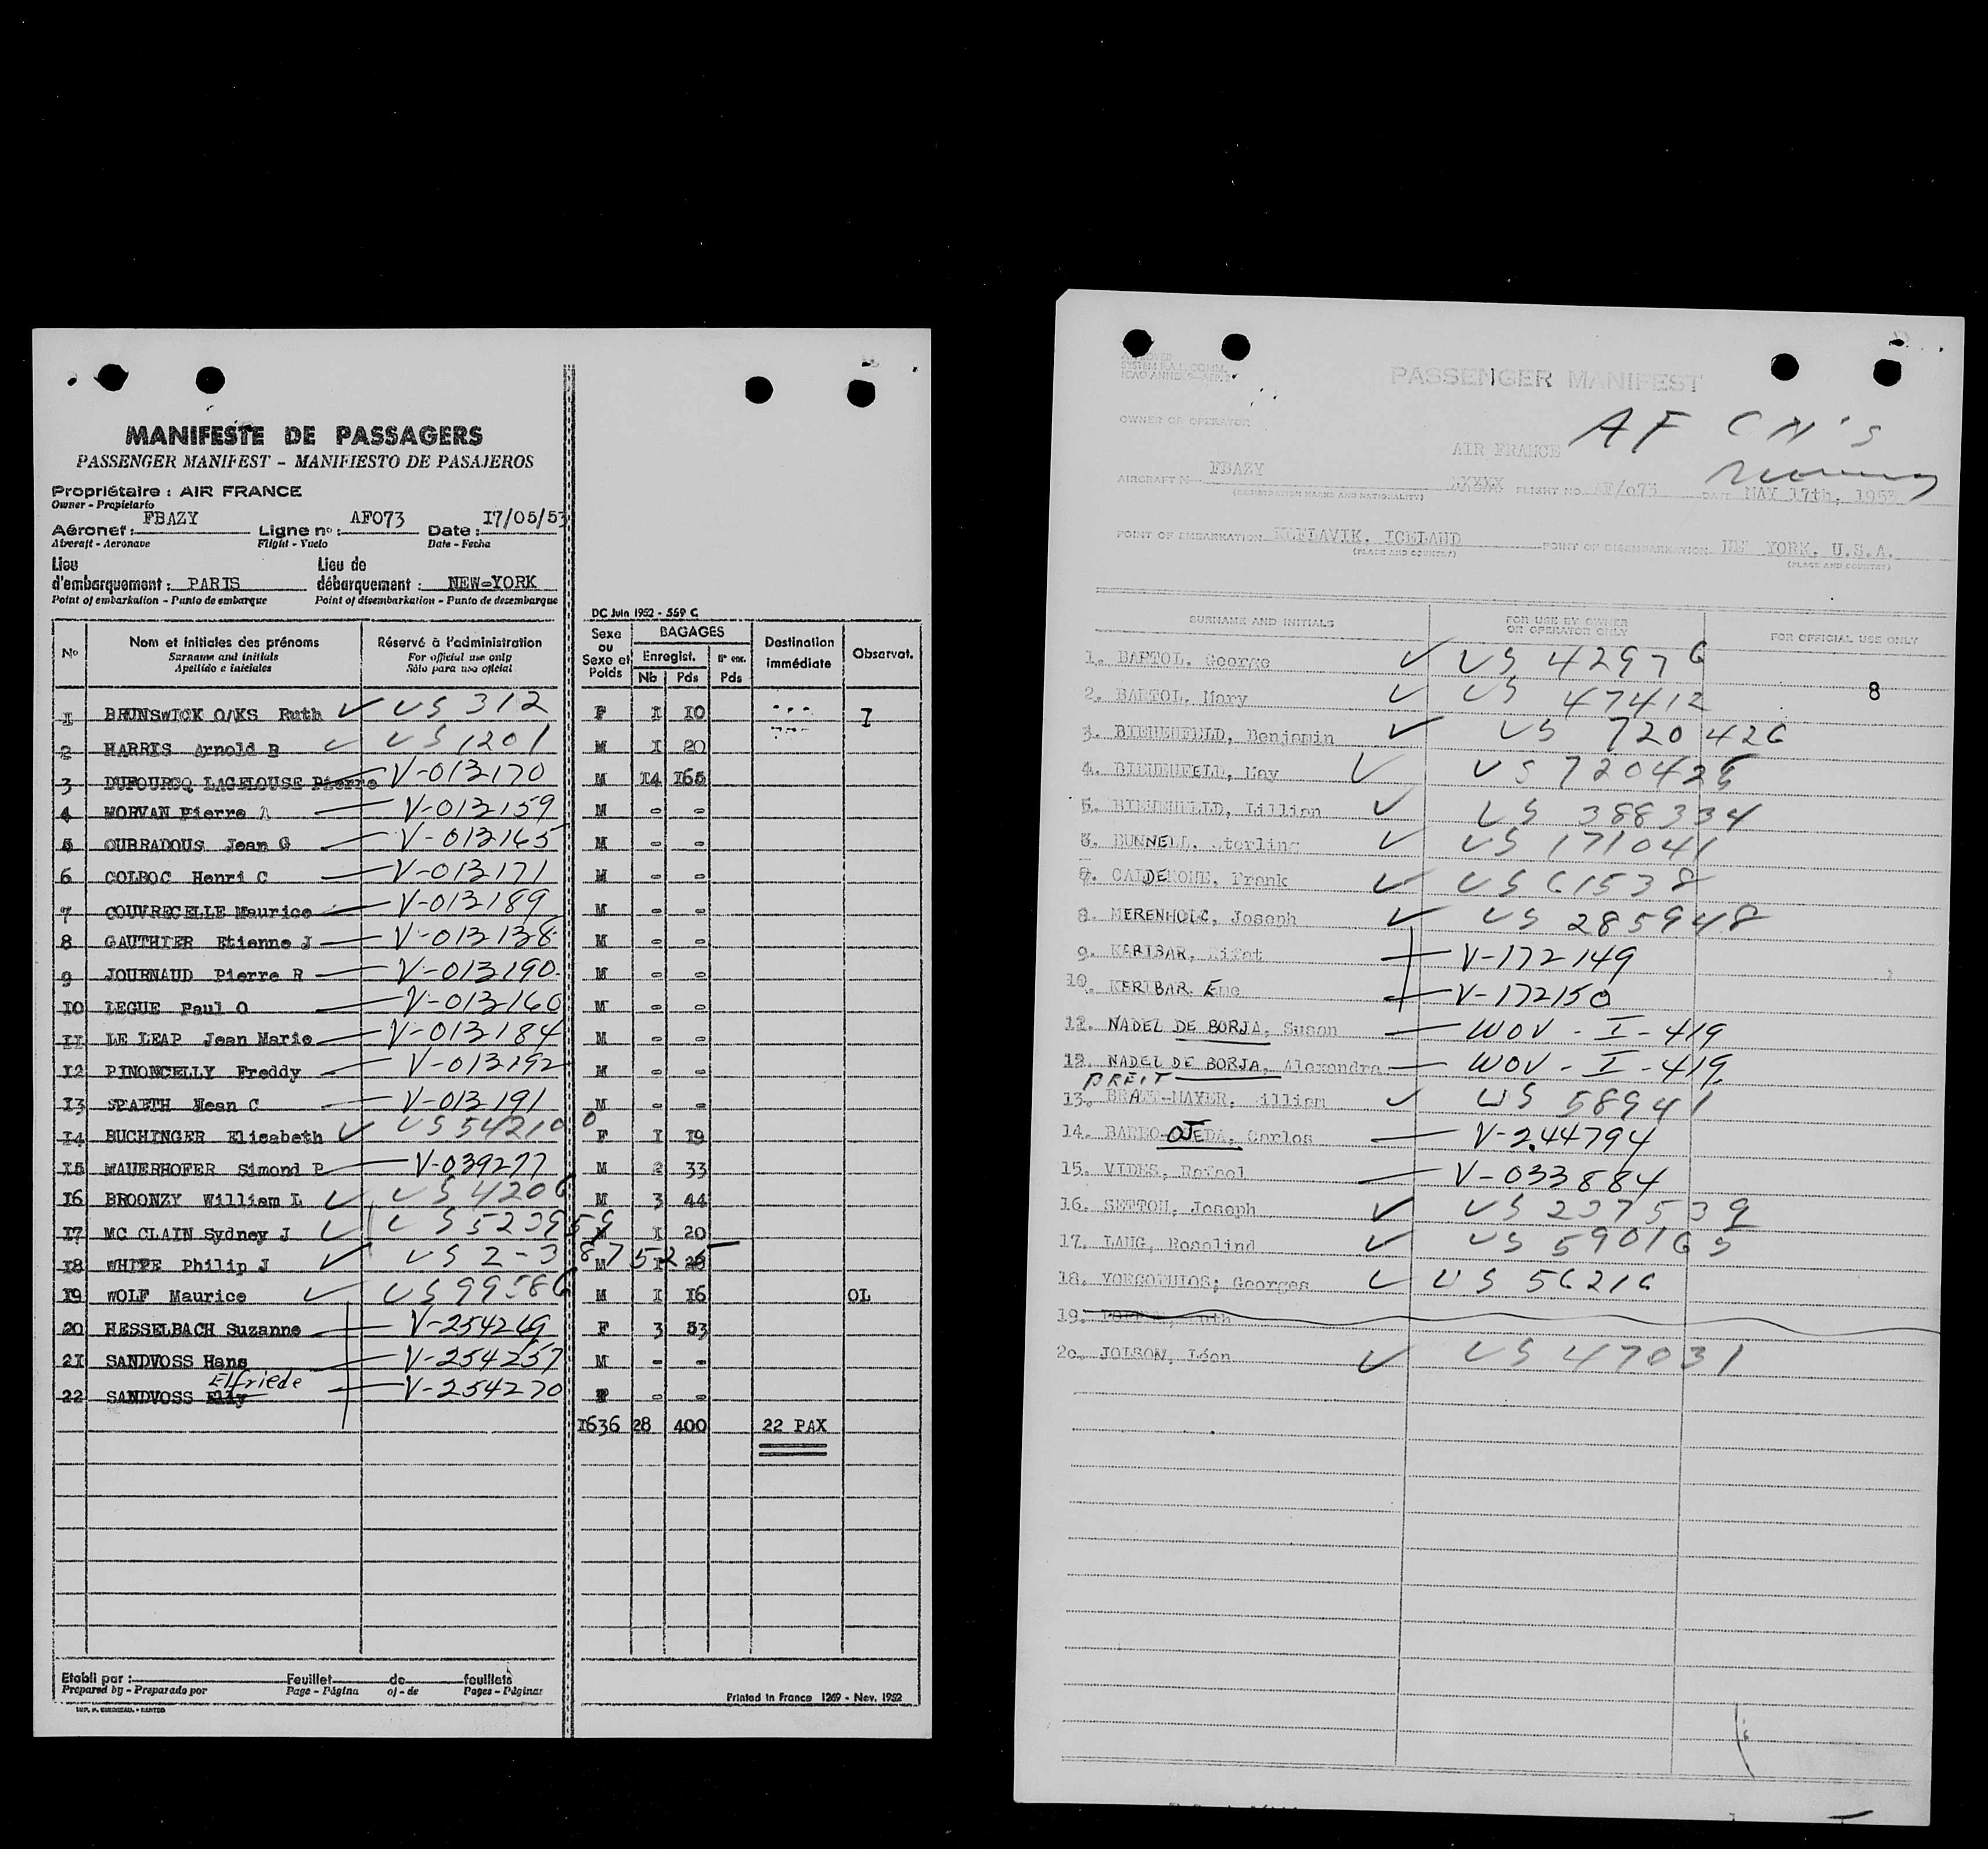 MANIFESTE DE PASSAGERS
PASSENGER MANIFEST - MANIFIESTO DE PASAJEROS
Propriétaire : AIR FRANCE
Owner - Propietario
Aéronef : FBAZY Ligne nº : AFO73 Date : I7/05/53
Aircraft - Aeronave Flight - Vuelo Date - Fecha
Lieu d'embarquement : PARIS Lieu de débarquement : NEW-YORK
Point of embarkation - Punto de embarque Point of disembarkation - Punto de desembarque
DC Juin 1952 - 559 C
Nº Nom et initiales des prénoms Réservé à l'administration Sexe ou Sexe et Poids BAGAGES Destination immédiate Observat.
Surname and initials For official use only Enregist. Nº enr.
Apellido e iniciales Sólo para uso oficial Nb Pds Pds
I BRUNSWICK O/KS Ruth US 312 F I IO I
2 HARRIS Arnold B US 1201 M I 20
3 DUFOURCQ LAGELOUSE Pierre V-013170 M I4 I65
4 MORVAN Pierre A V-013159 M - -
5 OUBRADOUS Jean G V-013165 M - -
6 COLBOC Henri C V-013171 M - -
7 COUVRECELLE Maurice V-013189 M - -
8 GAUTHIER Etienne J V-013138 M - -
9 JOURNAUD Pierre R V-013190 M - -
IO LEGUE Paul O V-013160 M - -
II LE LEAP Jean Marie V-013184 M - -
I2 PINONCELLY Freddy V-013192 M - -
I3 SPAETH Jean C V-013191 M - -
I4 BUCHINGER Elisabeth US 542100 F I I9
I5 MAUERHOFER Simond P V-039277 M 2 33
I6 BROONZY William L US 4206 M 3 44
I7 MC CLAIN Sydney J US 523959 M I 20
I8 WHITE Philip J US 2-387525 M I
I9 WOLF Maurice US 99586 M I I6 OL
20 HESSELBACH Suzanne V-254249 F 3 53
2I SANDVOSS Hans V-254257 M - -
Elfriede
22 SANDVOSS Elly V-254270 F - -
I636 28 400 22 PAX
Etabli par : Feuillet de feuillets
Prepared by - Preparado por Page - Página of - de Pages - Páginas
Printed in France 1269 - Nov. 1952
PASSENGER MANIFEST
AF CN's
OWNER OR OPERATOR AIR FRANCE
AIRCRAFT Nº FBAZY FLIGHT NO. AF/073 DATE MAY 17th, 1953
(REGISTRATION MARKS AND NATIONALITY)
POINT OF EMBARKATION KEFLAVIK, ICELAND POINT OF DISEMBARKATION NEW YORK, U.S.A.
(PLACE AND COUNTRY) (PLACE AND COUNTRY)
SURNAME AND INITIALS FOR USE BY OWNER OR OPERATOR ONLY FOR OFFICIAL USE ONLY
1. BARTOL, George US 42976
2. BARTOL, Mary US 47412 8
3. BIENENFELD, Benjamin US 720426
4. BIENENFELD, May US 720425
5. BIENENFELD, Lillian US 388334
6. BUNNELL, Sterling US 171041
7. CALDERONE, Frank US 61538
8. MERENHOLC, Joseph US 285948
9. KERIBAR, Rifat V-172149
10. KERIBAR V-172150
12. NADEL DE BORJA, Susan WOV - I - 419
12. NADEL DE BORJA, Alexandra WOV - I - 419
BREIT
13. MAYER, William US 58941
14. OJEDA, Carlos V-244794
15. VIDES, Rafael V-033884
16. Joseph US 237539
17. LANG, Rosalind US 590165
18. Georges US 56216
19.
20. JOLSON, Léon US 47031